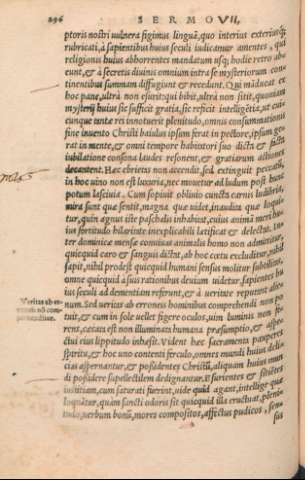 296 SERMO VII,
ptoris nostri vulnera figimus linguã, quo interius exteriusq́;
rubricati, à sapientibus huius seculi iudicamur amentes, qui
religionis huius abhorrentes mandatum usq; hodie retro ab-
eunt, & à secretis diuinis omnium intra se mysteriorum con-
tinentibus summam diffugiunt & recedunt. Qui mãducat ex
hoc pane, ultrà non esurit: qui bibit, ultrà non sitit, quoniam
mysterij huius sic sufficit gratia, sic reficit intelligẽtia, ut cui-
cunque tanta rei innotuerit plenitudo, omni consummationis
fine inuento Christi baiulus ipsum ferat in pectore, ipsum ge-
rat in mente, & omni tempore habitatori suo dicta & facta
iubilatione consona laudes resonent, & gratiarum actiones
decantent. Haec ebrietas non accendit, sed extinguit peccatũ,
in hoc uino non est luxuria, nec mouetur ad ludum post hunc
potum lasciuia. Cum sopiuit obliuio cuncta carnis ludibria,
mira sunt que sentit, magna que videt, inaudita que loqui-
tur, quin agnus iste paschalis inhabitat, cuius animã meri hu-
ius fortitudo hilaritate inexplicabili latificat & delectat. In-
ter dominicæ mensæ conuiuas animalis homo non admittitur,
quicquid caro & sanguis dictat, ab hoc cœtu excluditur, nihil
sapit, nihil prodest quicquid humani sensus molitur subtilitas,
omne quicquid à suis rationibus deuium uidetur, sapientes hu-
ius seculi ad dementiam referunt, & à ueritate reputant alie-
num. Sed ueritas ab erroneis hominibus comprehendi non po-
Veritas ab er-
roneis nõ com-
prehenditur.
tuit, & cum in sole uellet figere oculos, uim luminis non fe-
rens, cæcata est non illuminati humana præsumptio, & aspe-
ctui eius lippitudo inhæsit. Vident hæc sacramenta pauperes
spiritu, & hoc uno contenti ferculo, omnes mundi huius deli-
cias aspernantur, & possidentes Christũ, aliquam huius mun-
di possidere supellectilem dedignantur. Esurientes & sitientes
iustitiam, cum saturati fuerint, uide quid agant, intellige quæ
loquãtur, quàm sancti odoris sit quicquid illa eructuat, pleni-
tudo, uerbum bonũ, mores compositos, affectus pudicos, sen-
sus